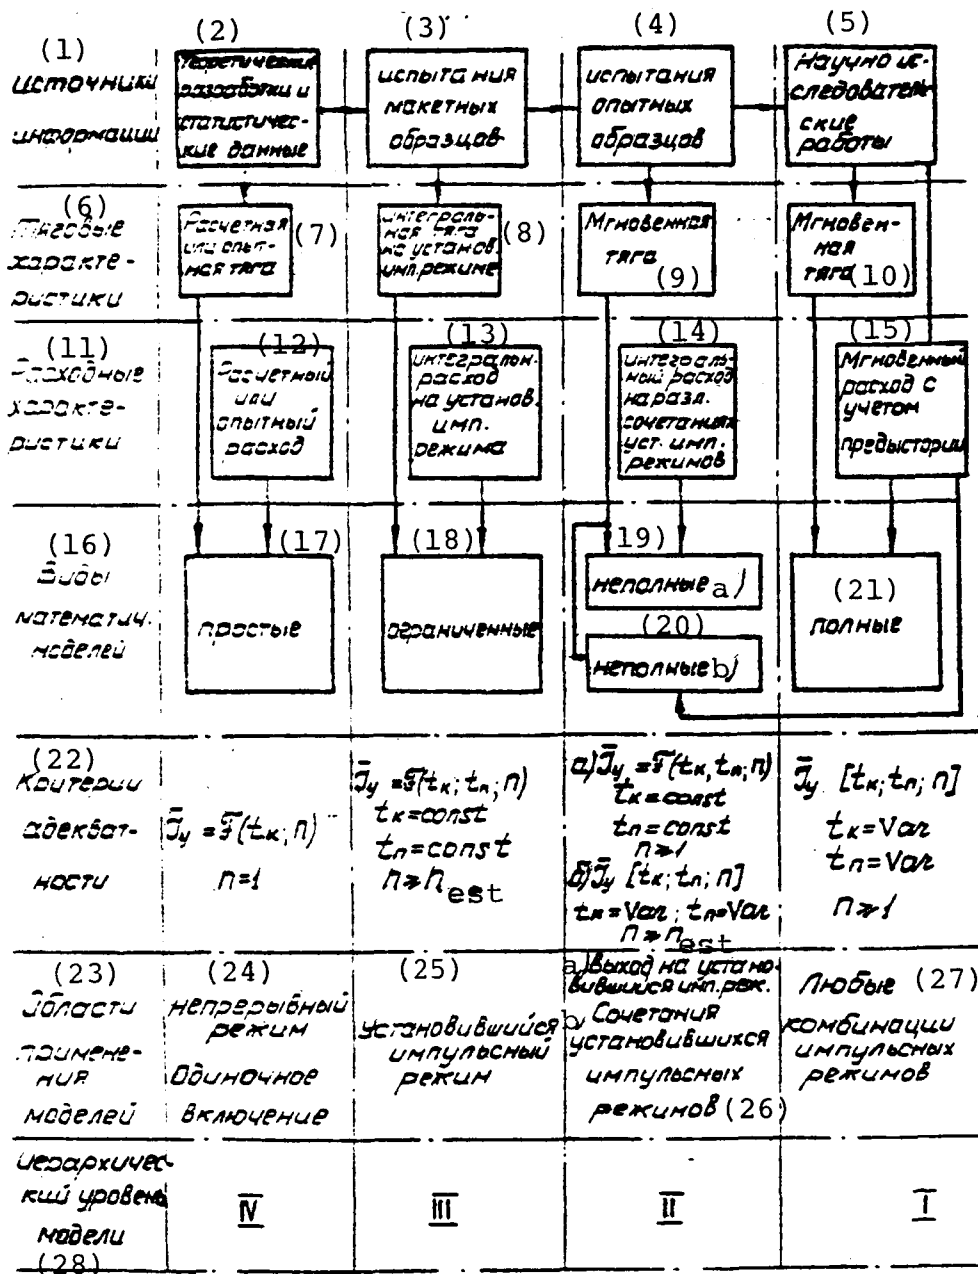 (1)
источники
информации
(2)
Теоретические
разработки и
статистичес-
кие данные
(3)
испытания
макетных
образцов
(4)
испытания
опытных
образцов
(5)
Научно ис-
следователь-
ские
работы
(6)
Тяговые
характе-
ристики
Расчетная
или опыт-
ная тяга
(7)
интеграль-
ная тяга
на установ.
имп. режиме
(8)
Мгновенная
тяга
(9)
Мгновен-
ная
тяга (10)
(11)
Расходные
характе-
ристики
(12)
Расчетный
или
опытный
расход
(13)
интегральн.
расход
на установ.
имп.
режима
(14)
интеграль-
ный расход
на разл.
сочетаниях
уст. имп.
режимов
(15)
Мгновенный
расход с
учетом
предыстории
(16)
Виды
математич.
моделей
(17)
простые
(18)
ограниченные
19)
неполные a)
(20)
неполные b)
(21)
полные
(22)
Критерии
адекват-
ности
J̄y = F(tк; n)
n=1
J̄y = F(tк; tп; n)
tк=const
tп=const
n ≥ n est
a) J̄y = F(tк, tп; n)
tк=const
tп=const
n ≥ 1
б) J̄y [tк; tп; n]
tк=Var; tп=Var
n ≥ n est
J̄y [tк; tп; n]
tк=Var
tп=Var
n ≥ 1
(23)
Области
примене-
ния
моделей
(24)
непрерывный
режим
Одиночное
включение
(25)
Установившийся
импульсный
режим
a) Выход на устано-
вившийся имп. реж.
b) Сочетания
установившихся
импульсных
режимов (26)
Любые (27)
комбинации
импульсных
режимов
иерархичес-
кий уровень
модели
(28)
IV
III
II
I